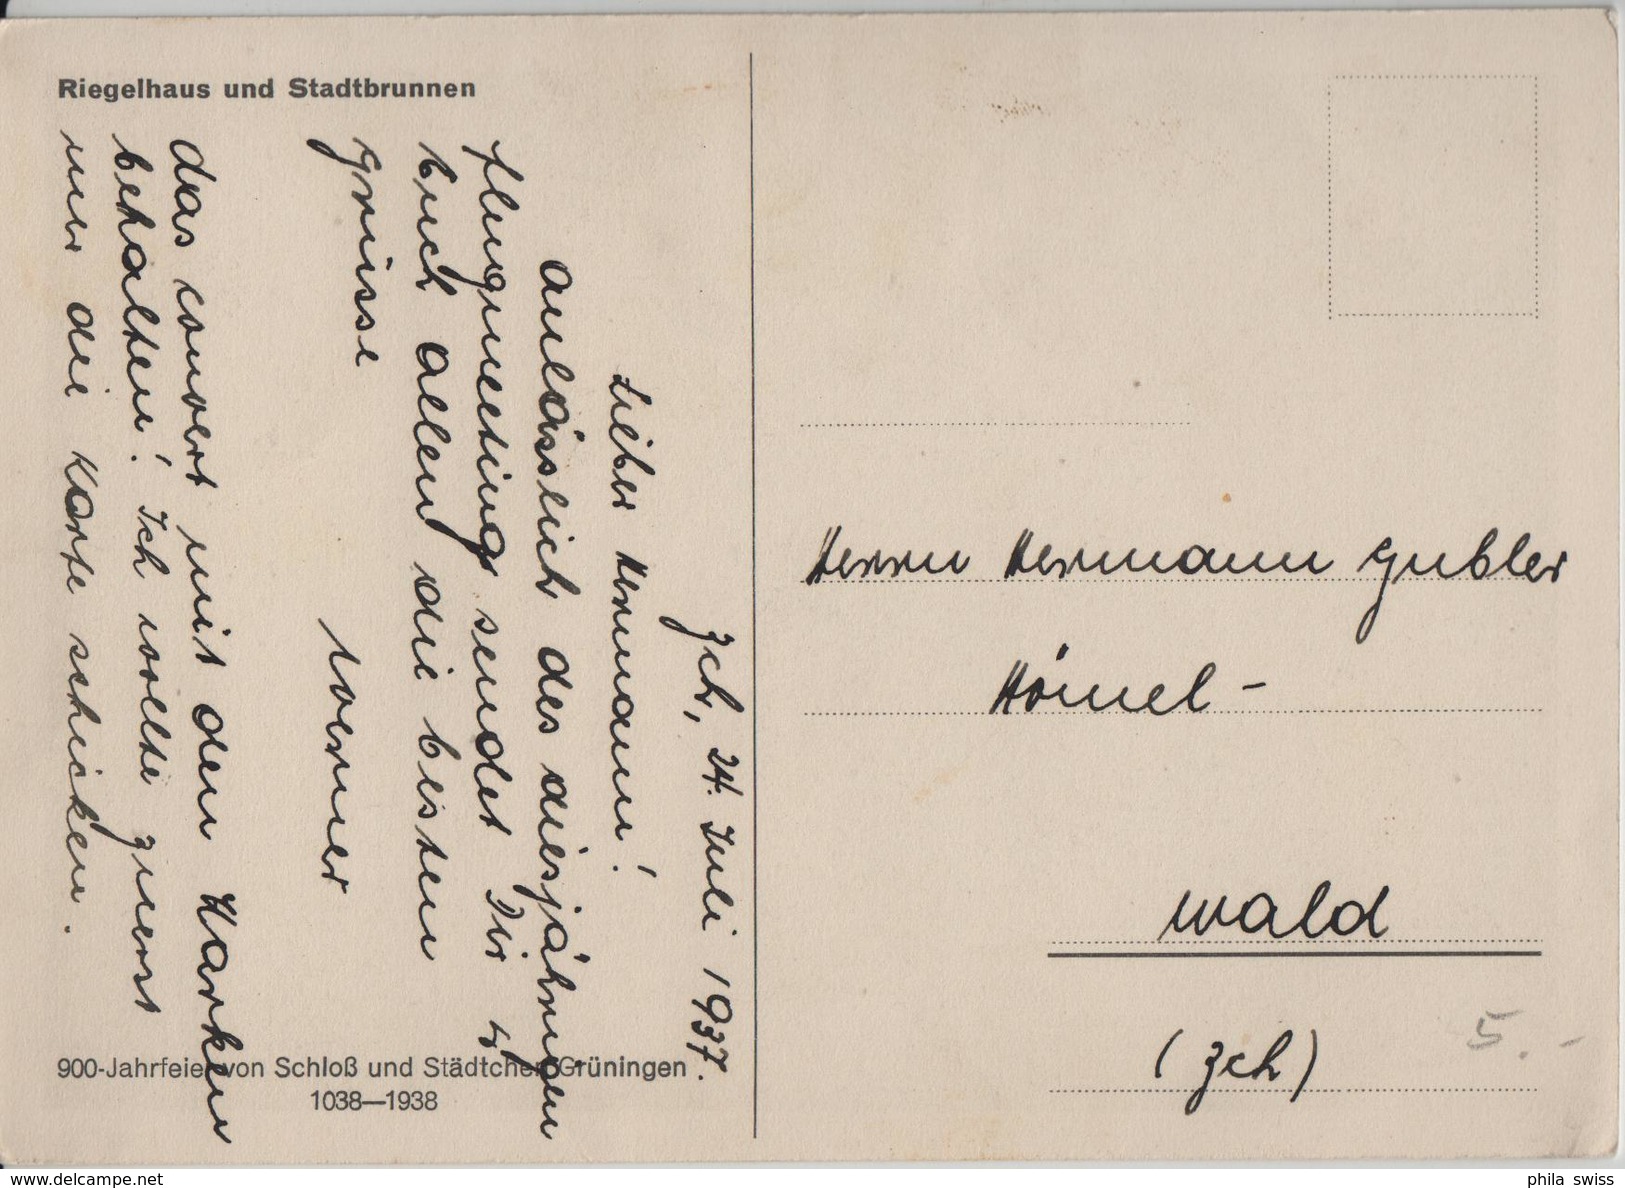 Riegelhaus und Stadtbrunnen
Zch, 24. Juli 1937.
Lieber Hermann!
Anlässlich des diesjährigen
flugmeeting sendet Dir &
Euch allen die besten
Grüsse
Werner
Das couvert mit den Marken
behalten! Ich wollte zuerst
nur die Karte schicken.
900-Jahrfeier von Schloß und Städtchen Grüningen
1038—1938
Herrn Hermann Gubler
Wald
(Zch)
5.-
phila swiss